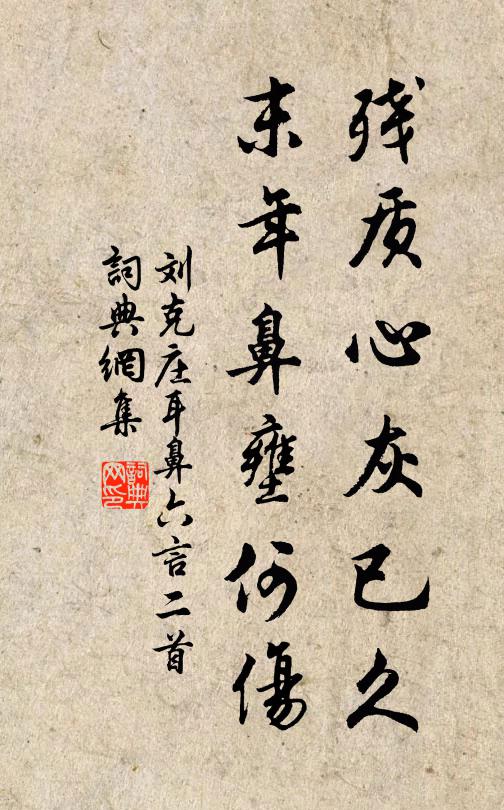 残质心灰已久
末年鼻壅何傷
刘克庄耳鼻六言二首
詞典網集
詞典网印